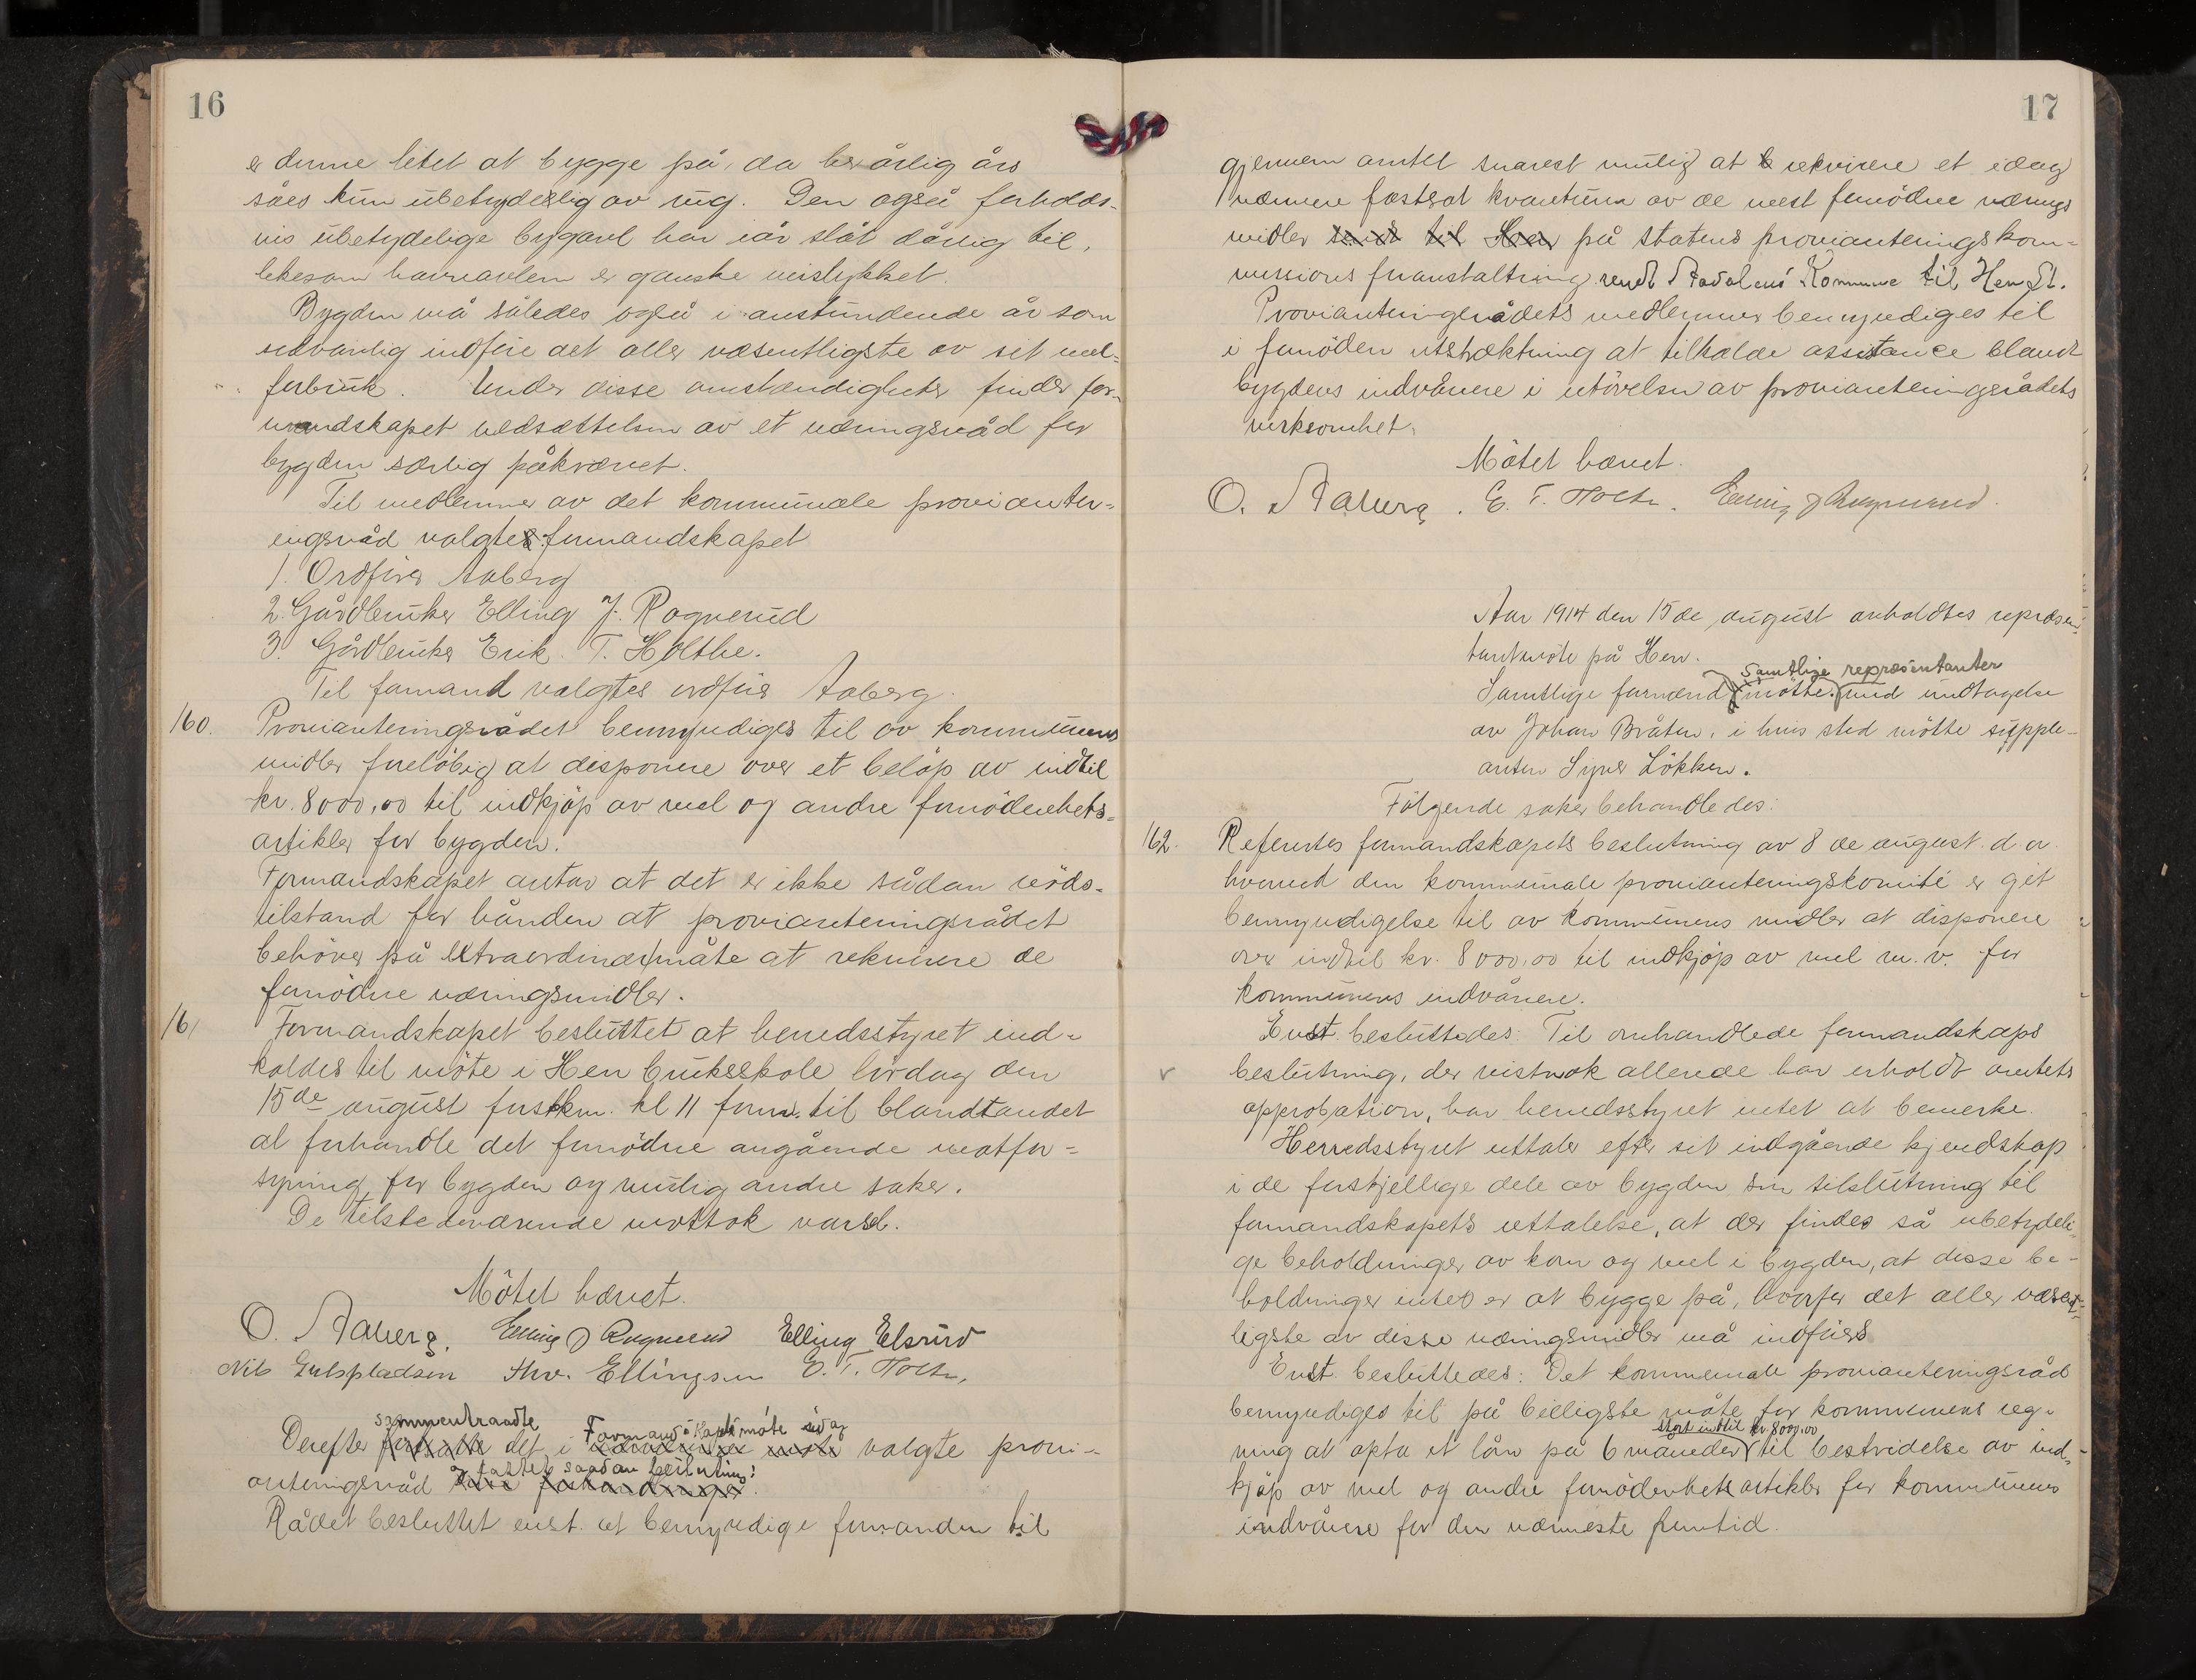 16
er denne litet at bygge på, da her årlig års
såes kun ubetydelig av rug. Den også forholds-
vis ubetydelige bygavl har iår slåt dårlig til,
likesom havreavlen er ganske mislykket.
Bygden må således også i anstundende år som
sedvanlig indføre det aller væsentligste av sit mel-
forbruk. Under disse omstændigheter finder for-
mandskapet nedsættelsen av et næringsråd for
bygden særlig påkrævet.
Til medlemmer av det kommunale provianter-
ingsråd valgtes formandskapet
1. Ordfører Aaberg
2. Gårdbruker Elling J. Rognerud
3. Gårdbruker Erik T. Holthe.
Til formand valgtes ordfører Aaberg.
160. Provianteringsrådet bemyndiges til av kommunens
midler foreløbig at disponere over et beløp av indtil
kr. 8000,00 til indkjøp av mel og andre fornødenhets-
artikler for bygden.
Formandskapet antar at det er ikke sådan nøds-
tilstand for hånden at provianteringsrådet
behøver på extraordinær måte at rekvirere de
fornødne næringsmidler.
161 Formandskapet besluttet at herredsstyret ind-
kaldes til møte i Hen bruksskole lørdag den
15de august førstkm. kl 11 form. til blandt andet
at forhandle det fornødne angående matfor-
syning for bygden og mulig andre saker.
De tilstedeværende mottok varsel.
Møtet hævet.
O. Aaberg. Elling J Rognerud Elling Elsrud
Nils Gulspladsen Thv. Ellingsen E. T. Holte.
sammentraadte Formandskapsmøte idag
Derefter det i valgte provi-
og fattet saadan beslutning:
anteringsråd
Rådet besluttet enst. at bemyndige formanden til
17
gjennem amtet snarest mulig at rekvirere et idag
nærmere fastsat kvantum av de mest fornødne nærings
midler sendt til Hen på statens provianteringskom-
missions foranstaltning sendt Aadalens Kommune til Hen St.
Provianteringsrådets medlemmer bemyndiges til
i fornøden utstrækning at tilkalde assistance blandt
bygdens indvånere i utøvelsen av provianteringsrådets
virksomhet.
Møtet hævet.
O. Aaberg. E. T. Holte. Elling J Rognerud.
Aar 1914 den 15de august avholdtes repræsen-
tantmøte på Hen.
Samtlige repræsentanter
Samtlige formænd møtte med undtagelse
av Johan Bråten, i hvis sted møtte supple-
anten Syver Løkken.
Følgende saker behandledes:
162. Refereres formandskapets beslutning av 8de august d. a.
hvorved den kommunale provianteringskomité er git
bemyndigelse til av kommunens midler at disponere
over indtil kr. 8000,00 til indkjøp av mel m. v. for
kommunens indvånere.
Enst. besluttedes: Til omhandlede formandskaps
beslutning, der vistnok allerede har erholdt amtets
approbation, har herredsstyret intet at bemerke.
Herredsstyret uttaler efter sit indgående kjendskap
i de forskjellige dele av bygden sin tilslutning til
formandskapets uttalelse, at der findes så ubetydeli-
ge beholdninger av korn og mel i bygden, at disse be-
holdninger intet er at bygge på, hvorfor det aller væsent-
ligste av disse næringsmidler må indføres
Enst. besluttedes: Det kommunale provianteringsråd
bemyndiges til på billigste måte for kommunens reg-
stort indtil kr. 8000,00
ning at opta et lån på 6 måneder til bestridelse av ind-
kjøp av mel og andre fornødenhetsartikler for kommunens
indvånere for den nærmeste fremtid.